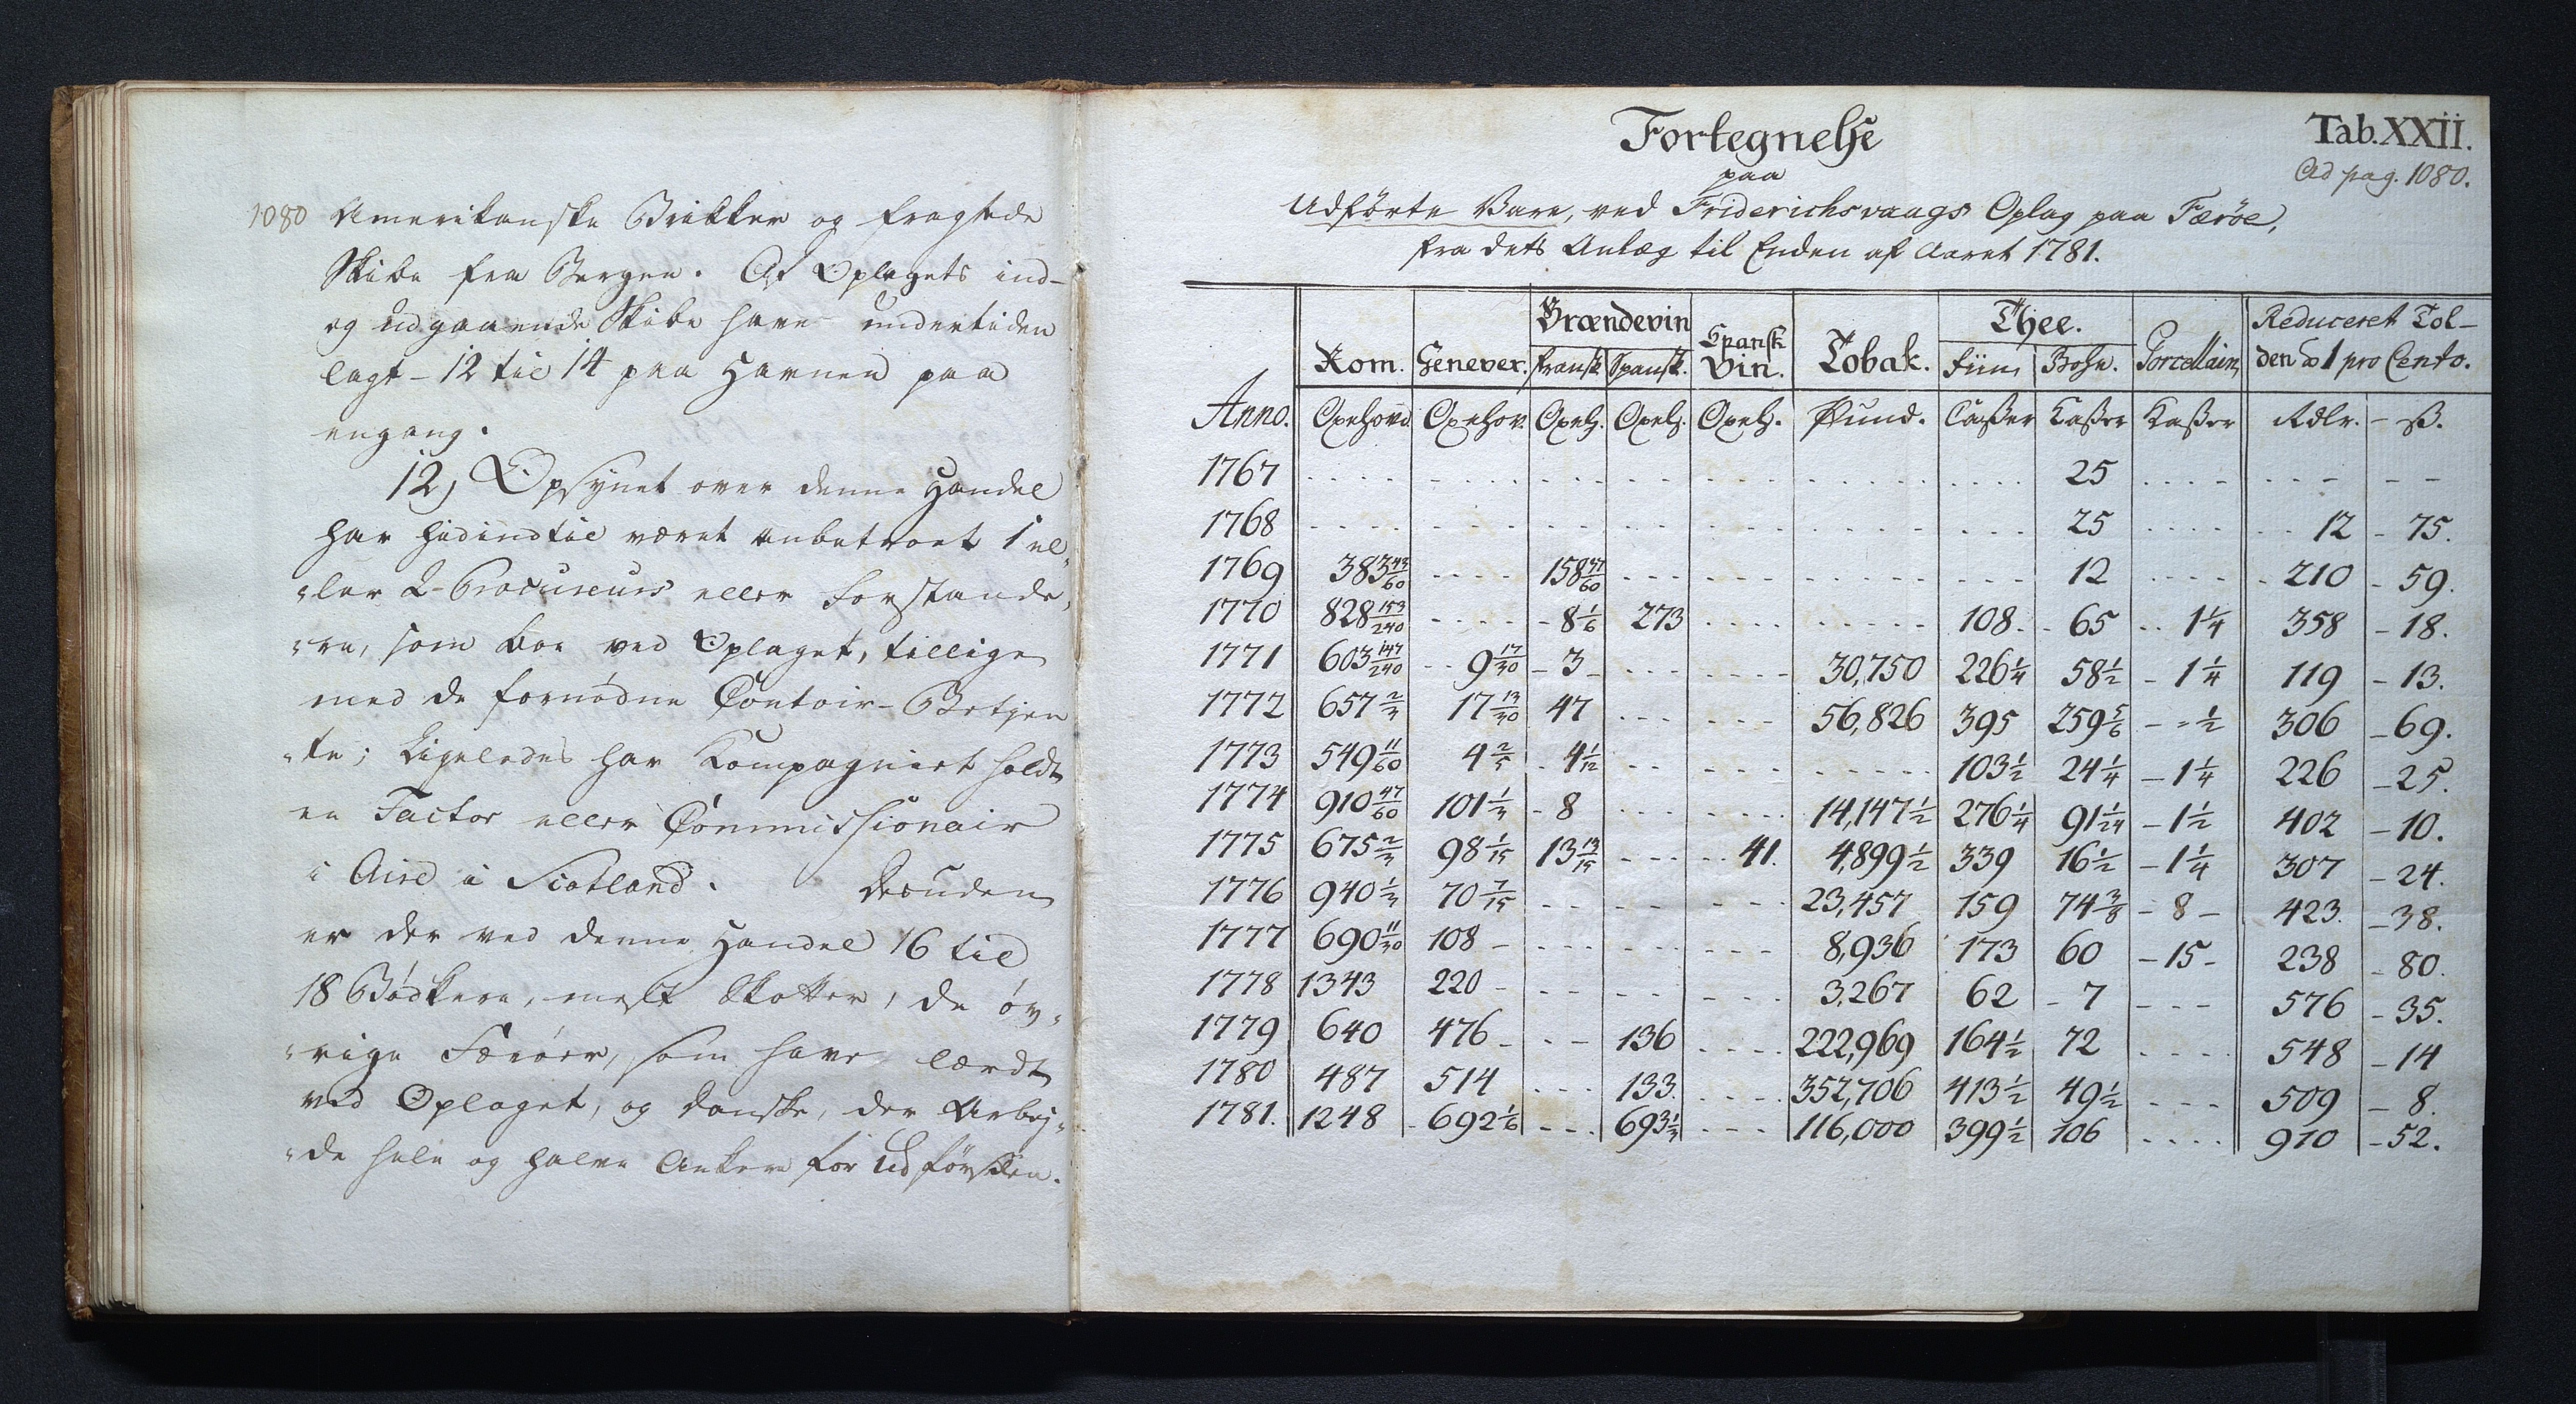 1080 Amerikanske Brikker og fragtede
Skibe fra Bergen. Af Oplagets ind-
og udgaaende Skibe have undertiden
lagt - 12 til 14 paa Havnen paa
engang.
12, Opsynet over denne Handel
har hidindtil været anbetroet 1 el-
"ler 2 Procureurs eller Forstande,
"re, som boe ved Oplaget, tillige
med de fornødne Contoir-Betjen
"te; Ligeledes har Kompagniet holdt
en Factor eller Commissionair
i Aire i Scotland. Desuden
er der ved denne Handel 16 til
18 Bødkere, mest Skotter, de øv-
"rige Færöer, som have lærdt
ved Oplaget, og danske, der Arbej-
"de hele og halve Ankere for Udførslen.
Tab. XXII.
Ad pag. 1080.
Fortegnelse
paa
Udförte Vare, ved Friderichsvaags Oplag paa Færöe,
fra dets Anlæg til Enden af Aaret 1781.
Anno. | Rom. | Genever. | Brændevin | Spansk Vin. | Tobak. | Thee. | Porcellain, | Reduceret Tol-
fransk | Spansk. | Fiin, | Bohe. | den à 1 pro Cento.
Oxehoved. | Oxehov. | Oxeh. | Oxeh. | Oxeh. | Pund. | Casser | Kasser | Kasser | Rdlr. - ß.
1767 | .... | .... | ... | ... | ... | .... | ... | 25 | .... | --- | --
1768 | .... | .... | ... | ... | ... | .... | ... | 25 | .... | 12 | - 75.
1769 | 383 43/60 | .... | 158 47/60 | ... | ... | .... | ... | 12 | .... | 210 | - 59.
1770 | 828 153/240 | .... | - 8 1/6 | 273 | .... | .... | 108. | - 65 | .. 1 1/4 | 358 | - 18.
1771 | 603 147/240 | .. 9 17/30 | - 3 - | ... | .... | 30,750 | 226 1/4 | 58 1/2 | - 1 1/4 | 119 | - 13.
1772 | 657 2/3 | 17 13/30 | 47 | ... | ... | 56,826 | 395 | 259 5/6 | - - 1/2 | 306 | - 69.
1773 | 549 11/60 | 4 2/5 | . 4 1/12 | .. | ... | ..... | 103 1/2 | 24 1/4 | - 1 1/4 | 226 | - 25.
1774 | 910 47/60 | 101 1/3 | - 8 | ... | .... | 14,147 1/2 | 276 1/4 | 91 1/24 | - 1 1/2 | 402 | - 10.
1775 | 675 2/3 | 98 1/15 | 13 13/15 | .... | .. 41. | 4,899 1/2 | 339 | 16 1/2 | - 1 1/4 | 307 | - 24.
1776 | 940 1/3 | 70 7/15 | -- | -- | --- | 23,457 | 159 | 74 3/8 | - 8 - | 423. | - 38.
1777 | 690 11/30 | 108 - | ... | ... | ... | 8,936 | 173 | 60 | - 15 - | 238 | - 80.
1778 | 1343 | 220 - | -- | -- | --- | 3,267 | 62 | - 7 | --- | 576 | - 35.
1779 | 640 | 476 - | .- | 136 | .... | 222,969 | 164 1/2 | 72 | .... | 548 | - 14
1780 | 487 | 514 | ... | 133. | .... | 352,706 | 413 1/2 | 49 1/2 | --- | 509 | - 8.
1781. | 1248 | - 692 1/6 | --. | 693 1/3 | --- | 116,000 | 399 1/2 | 106 | .... | 910 | - 52.